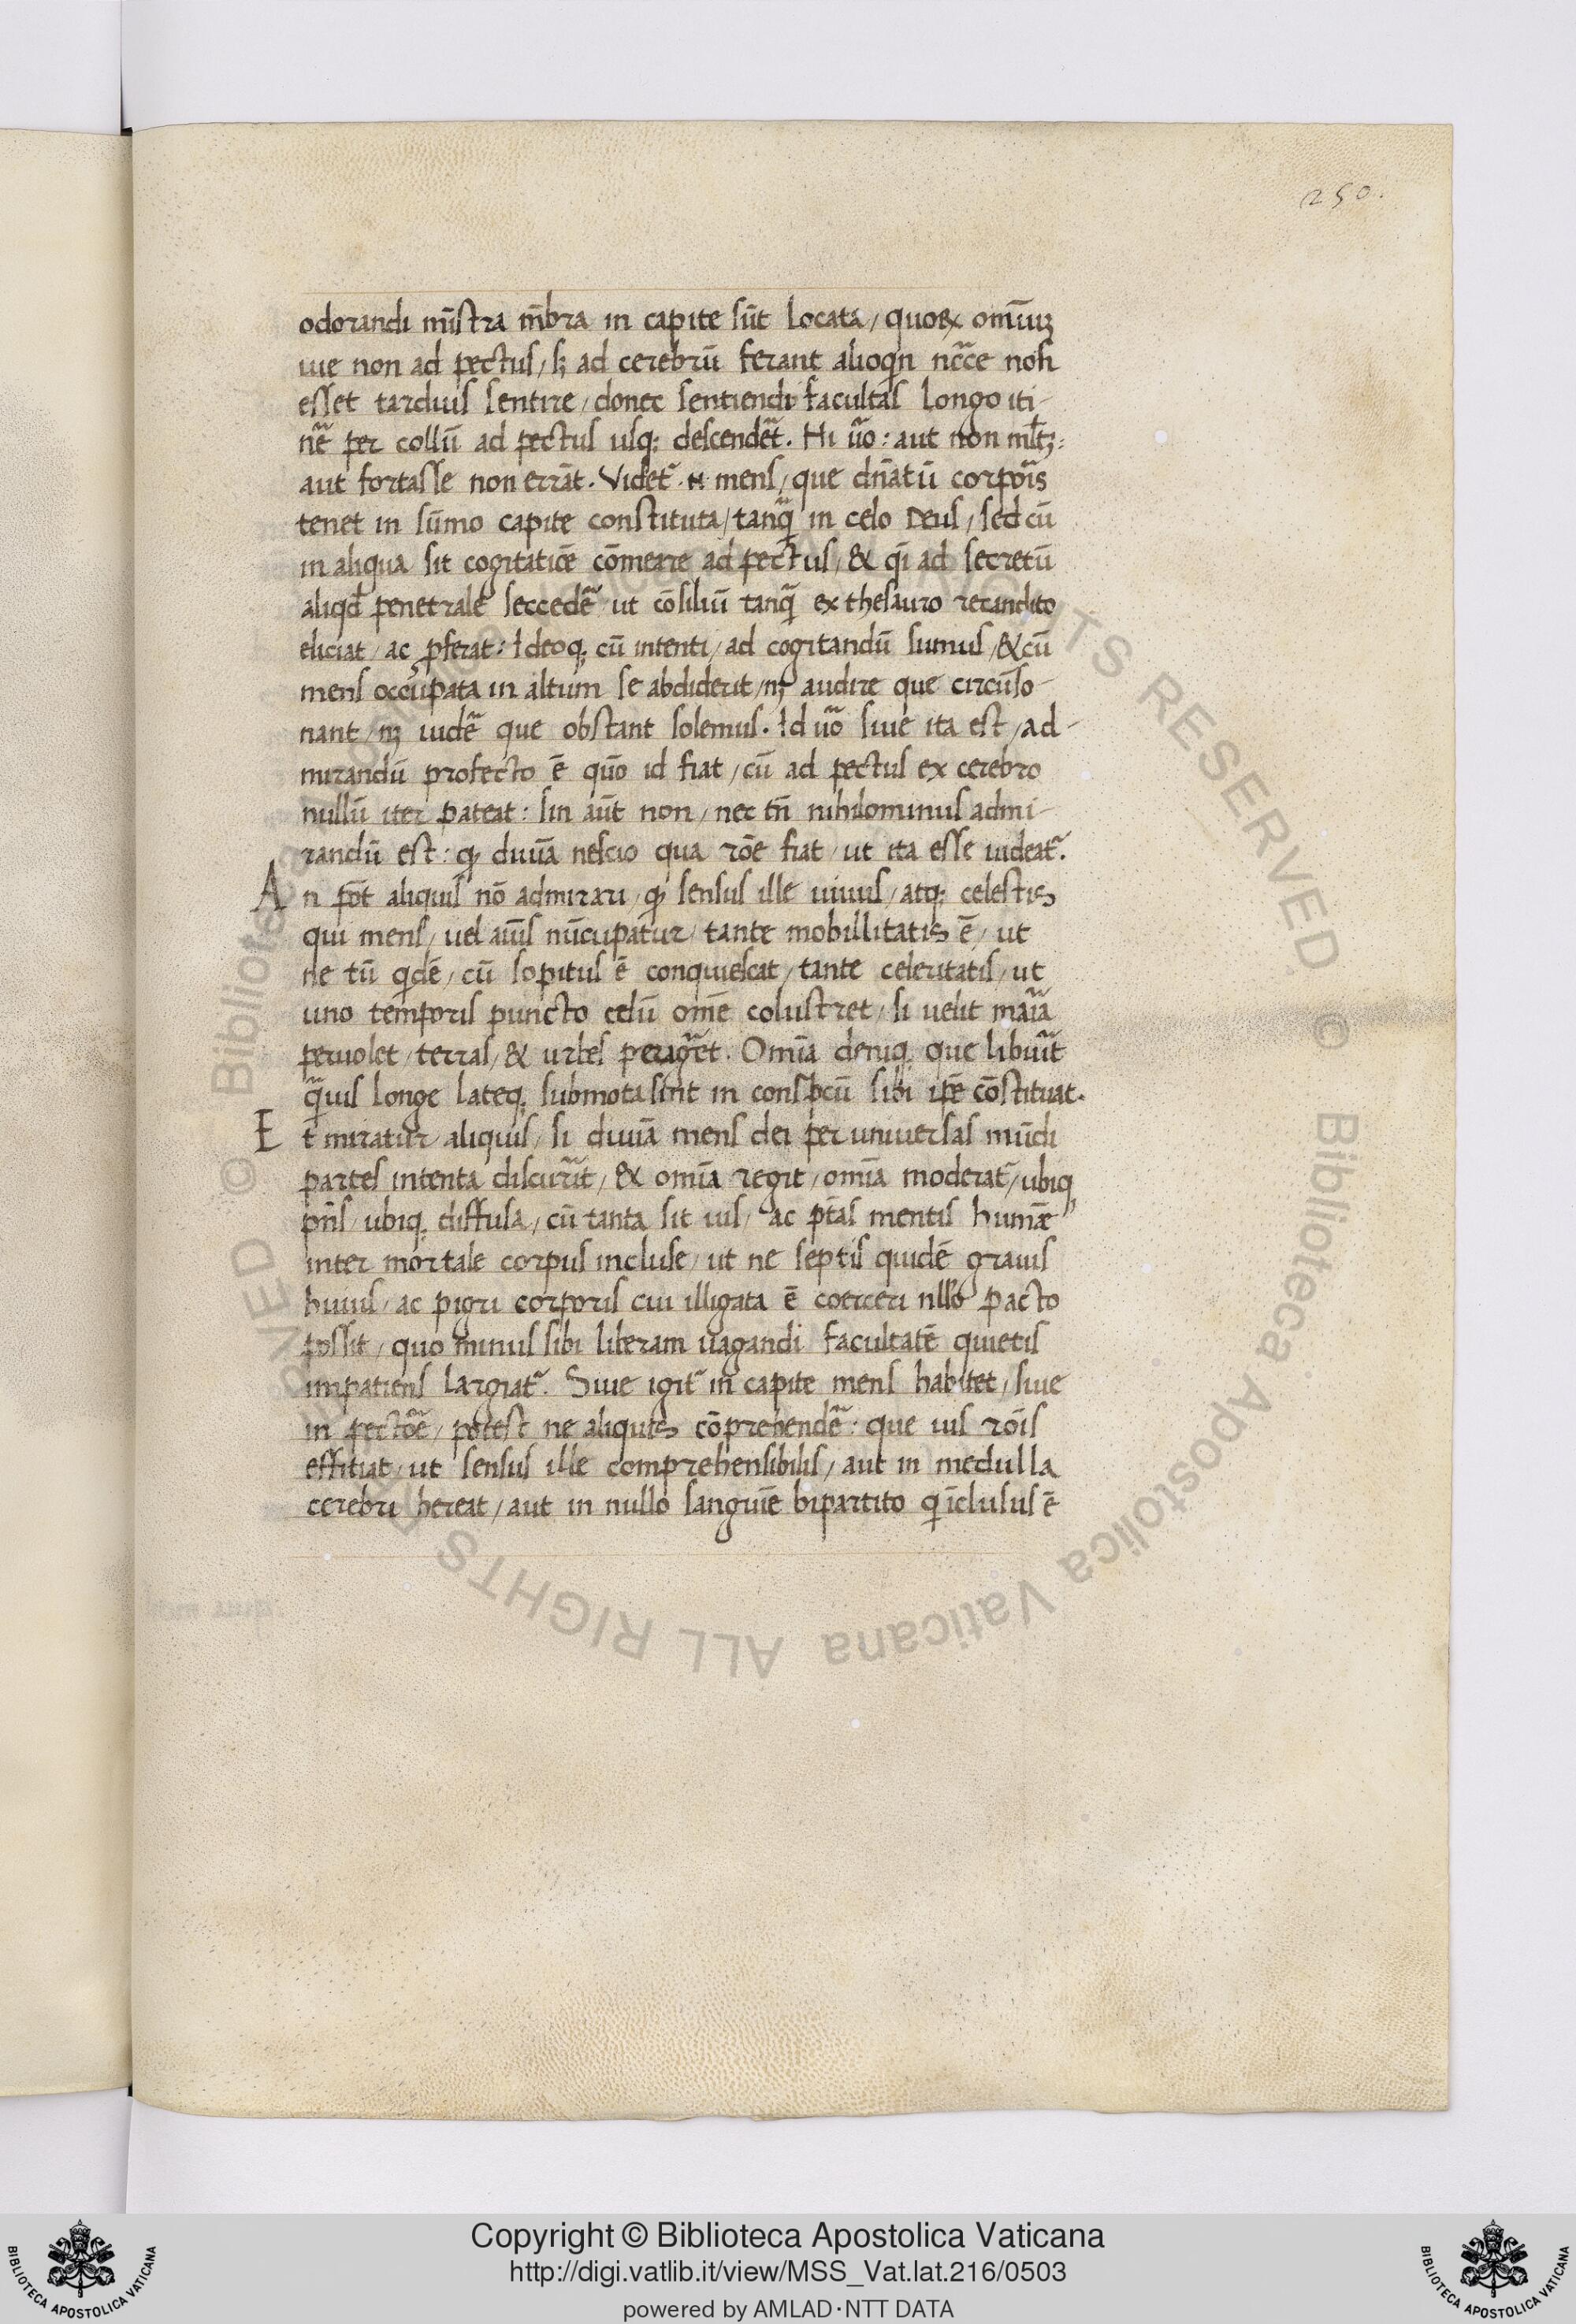 250.
odorandi mīstra mb̄ra in capite sūt locata / quoꝝ omīuꝫ
uie non ad pectus / sꝫ ad cerebrū ferant alioqͥn ncc̄e non
esset tardius sentire / donec sentiendi facultas longo iti-
nē per collū ad pectus usqꝫ descendēt. Hi u͞o: aut non mltꝫ:
aut fortasse non errāt. Videt᷑ .n. mens / que dn̄atū corpoīs
tenet in sūmo capite constituta / tanqͣ in celo Deus / sed cū
in aliqua sit cogitatiōe cōmeare ad pectus / & qͣi ad secretū
aliqd̄ penetrale seccedē ut cōsiliū tanqͣ ex thesauro recondito
eliciat / ac ꝓferat: Ideoqꝫ cū intenti / ad cogitandū sumus / & cū
mens occūpata in altum se abdiderit / nꝫ audire que circūso-
nant / nꝫ uidē que obstant solemus. Id u͞o siue ita est / ad-
mirandū profecto ē quō id fiat / cū ad pectus ex cerebro
nullū iter pateat: sin aūt non / nec tn̄ nihilominus admi-
randū est: qꝫ diuīa nescio qua rōe fiat / ut ita esse uideat᷑.
An pōt aliquis nō admirari / qꝫ sensus ille uiuus / atqꝫ celestis
qui mens / uel aīus nūcupatur / tante mobillitatis ē / ut
ne tū qͥdē / cū sopitus ē conquiescat / tante celeritatis / ut
uno temporis puncto celū omē colustret / si uelit maīa
peruolet / terras / & urbes peragēt. Omīa deniqꝫ que libuīt
qͣuis longe lateqꝫ submota sint in conspcū sibi ipē cōstituat.
Et miratur aliquis / si diuīa mens dei per uniuersas mūdi
partes intenta discurīt / & omīa regit / omīa moderat᷑ / ubiqꝫ
pn̄s / ubiqꝫ diffusa / cū tanta sit uis / ac pt̄as mentis humāe
inter mortale corpus incluse / ut ne septis quidē grauis
huius / ac pigri corporis cui illigata ē coerceri nllō pacto
possit / quo minus sibi liberam uagandi facultatē quietis
impatiens largiat᷑. Siue igit᷑ in capite mens habitet / siue
in pectōe / potest ne aliquis cōprehendē: que uis rōis
effitiat / ut sensus ille comprehensibilis / aut in medulla
cerebri hereat / aut in nullo sanguīe bipartito qͥ īclusus ē
Copyright © Biblioteca Apostolica Vaticana
http://digi.vatlib.it/view/MSS_Vat.lat.216/0503
powered by AMLAD·NTT DATA